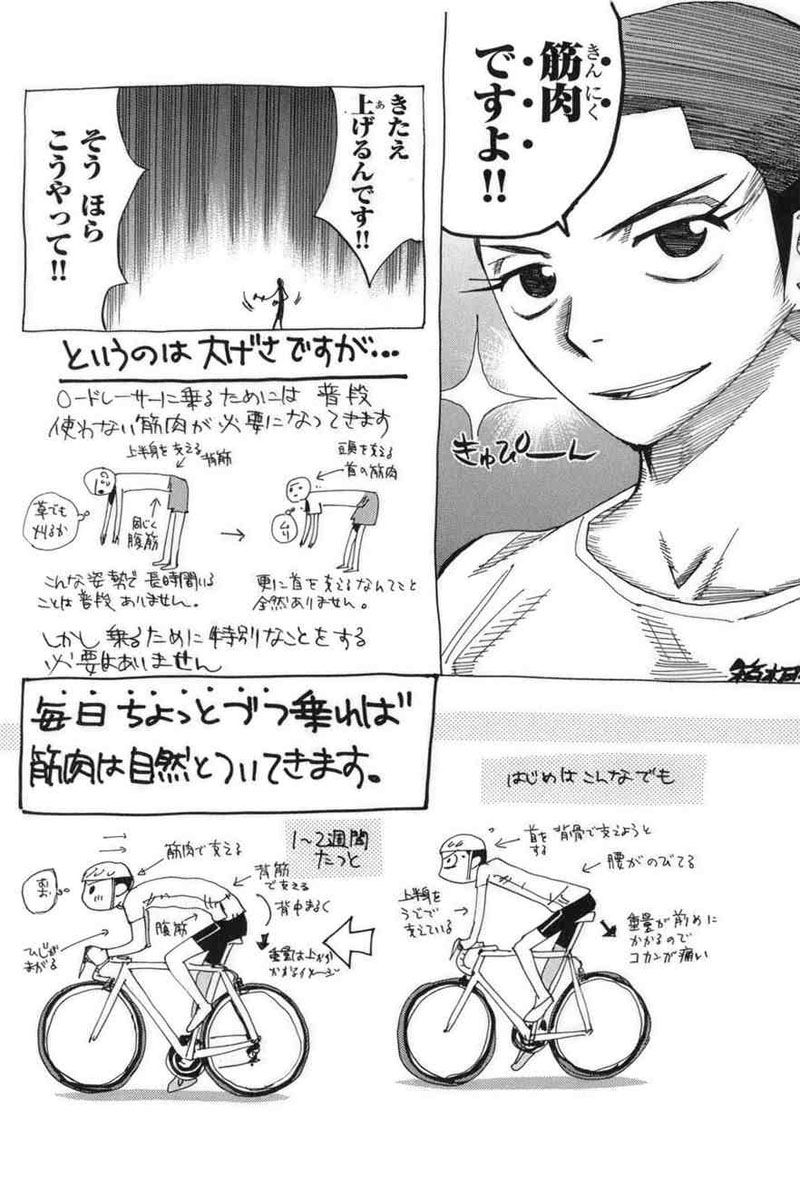 筋肉
ですよ!!
きんにく
きゅぴーん
きたえ
上げるんです!!
あ
そう ほら
こうやって!!
というのは大げさですが…
ロードレーサーに乗るためには 普段
使わない筋肉が必要になってきます
上半身を支える
背筋
草でも
刈るか
同じく
腹筋
こんな姿勢で長時間いる
ことは普段ありません。
頭を支える
首の筋肉
ムリ
更に首を支えるなんてこと
全然ありません。
しかし乗るために特別なことをする
必要はありません
毎日ちょっとづつ乗れば
筋肉は自然とついてきます。
はじめはこんなでも
首を背骨で支えようと
する
腰がのびてる
上半身を
うでで
支えている
重量が前めに
かかるので
コカンが痛い
1〜2週間
たつと
筋肉で支える
背筋
で支える
背中まるく
腹筋
ひじが
まがる
重量は上から
かかるイメージ